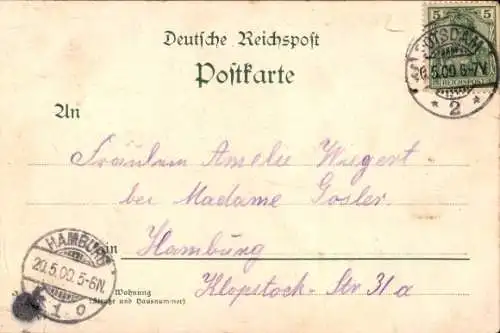 Deutsche Reichspost
Postkarte
5 5
REICHSPOST
POTSDAM
20.5.00.6-7V.
* 2 *
An
Fräulein Amelie Wiegert
bei Madame Gosler
in Hamburg
Wohnung
(Straße und Hausnummer)
Klopstock-Str 31a
HAMBURG
20.5.00.5-6N.
1